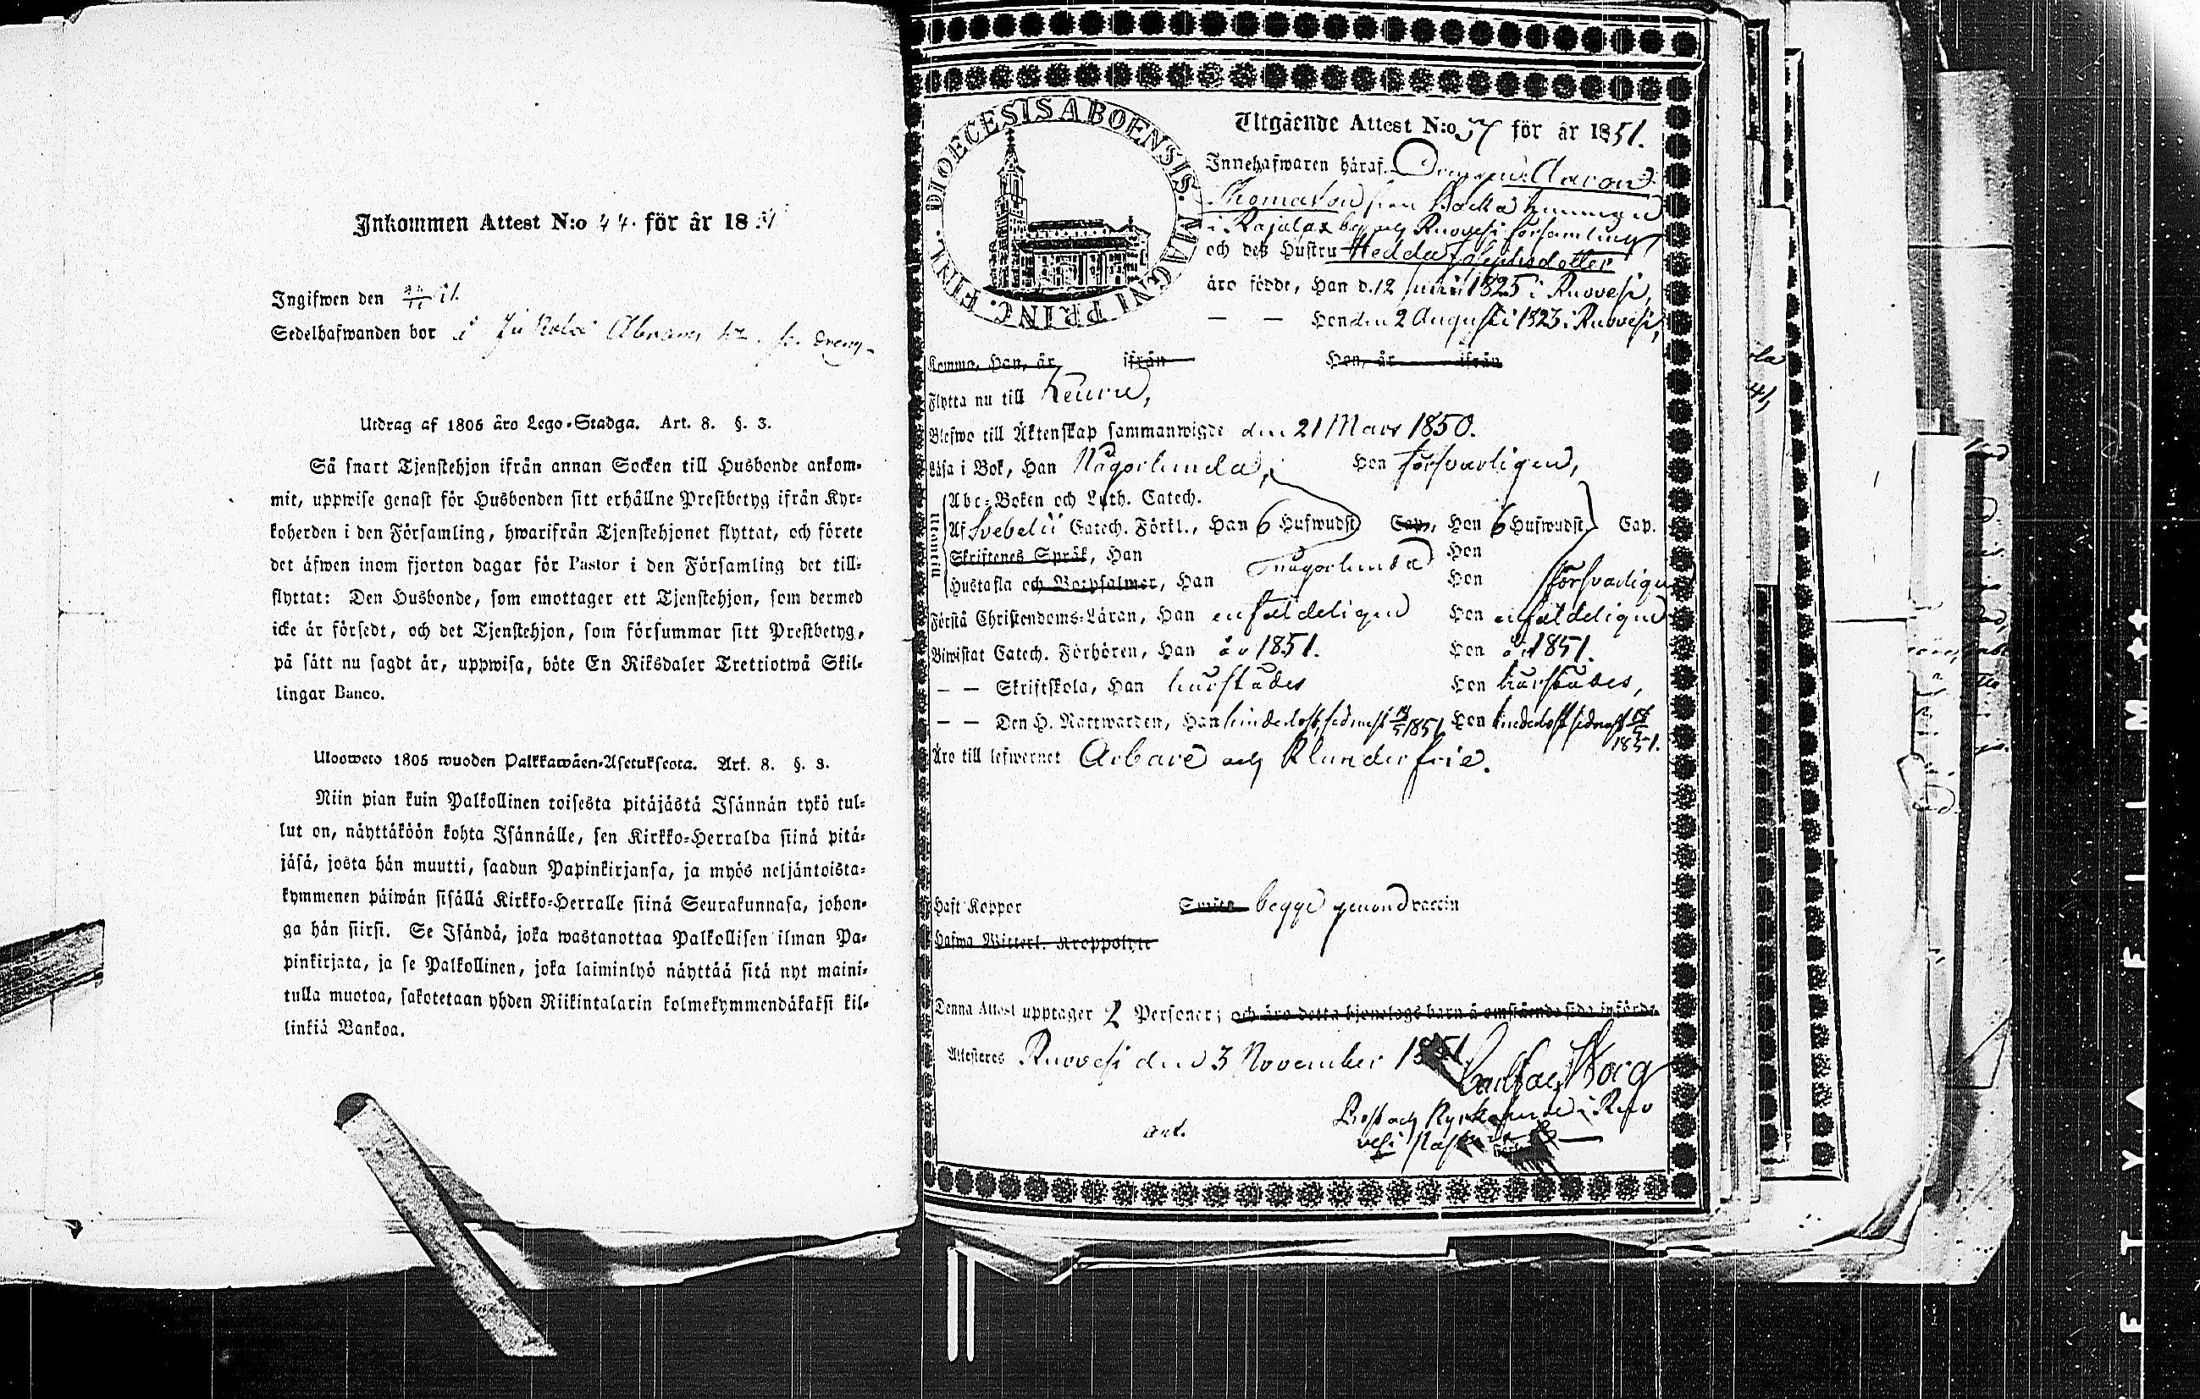 Inkommen Attest N:o 44. för år 1851
Ingifwen den 22/11 51.
Sedelhafwanden bor i Jukola Abram
Utdrag af 1805 års Lego-Stadga. Art. 8. §. 3.
Så snart Tjenstehjon ifrån annan Socken till Husbonde ankom-
mit, uppwise genast för Husbonden sitt erhållne Prestbetyg ifrån Kyr-
koherden i den Församling, hwarifrån Tjenstehjonet flyttat, och förete
det äfwen inom fjorton dagar för Pastor i den Församling det till-
flyttat: Den Husbonde, som emottager ett Tjenstehjon, som dermed
icke är försedt, och det Tjenstehjon, som försummar sitt Prestbetyg,
på sätt nu sagdt är, uppwisa, böte En Riksdaler Trettiotwå Skil-
lingar Banco.
Ulosweto 1805 wuoden Palkkawäen-Asetuksesta. Art. 8. §. 3.
Niin pian kuin Palkollinen toisesta pitäjästä Isännän tykö tul-
lut on, näyttäköön kohta Isännälle, sen Kirkko-Herralda siinä pitä-
jäsä, josta hän muutti, saadun Papinkirjansa, ja myös neljäntoista-
kymmenen päiwän sisällä Kirkko-Herralle siinä Seurakunnasa, johon-
ga hän siirsi. Se Isändä, joka wastanottaa Palkollisen ilman Pa-
pinkirjata, ja se Palkollinen, joka laiminlyö näyttää sitä nyt maini-
tulla muotoa, sakotetaan yhden Riikintalarin kolmekymmendäkaksi kil-
linkiä Bankoa.
DIOECESIS ABOENSIS. MAGNI PRINC. FINL.
Utgående Attest N:o 57 för år 1851.
Innehafwaren häraf. Drengen Aaron
Thomasson från Backa hemman
i Rajalax by och Ruovesi församling
och dess Hustru Hedda Josephsdotter
äro födde, Han d. 12 Junii 1825 i Ruovesi,
— — Hon den 2 Augusti 1823 i Ruovesi,
Komma, Han, år ifrån Hon, år ifrån
Flytta nu till Keuru,
Blefwo till Äktenskap sammanwigde den 21 Mars 1850.
Läsa i Bok, Han Någorlunda, Hon försvarligen,
Utantill
Abc-Boken och Luth. Catech.
Af Svebelii Catech. Förkl., Han 6 Hufwudst Cap. Hon 6 Hufwudst Cap.
Skriftenes Språk, Han någorlunda Hon
Hustafla och Botpsalmer, Han Hon försvarligen
Förstå Christendoms-Läran, Han enfaldeligen Hon enfaldeligen
Biwistat Catech. Förhören, Han år 1851. Hon år 1851.
— — Skriftskola, Han härstädes Hon härstädes,
— — Den H. Nattwarden, Han hinderlöst, sednast 1851 Hon hinderlöst sednast
1851.
Äro till lefwernet Ärbare och Klanderfrie.
Haft Koppor Smitta begge genom Vaccin
Hafwa Witterl. Kroppslyte
Denna Attest upptager 2 Personer; och äro detta hjonelags barn å omstående sida införde.
Attesteras Ruovesi den 3 November 1851
Carl Borg
Prost och Kyrkoherde i Ruo
vesi
ETYÄFILM